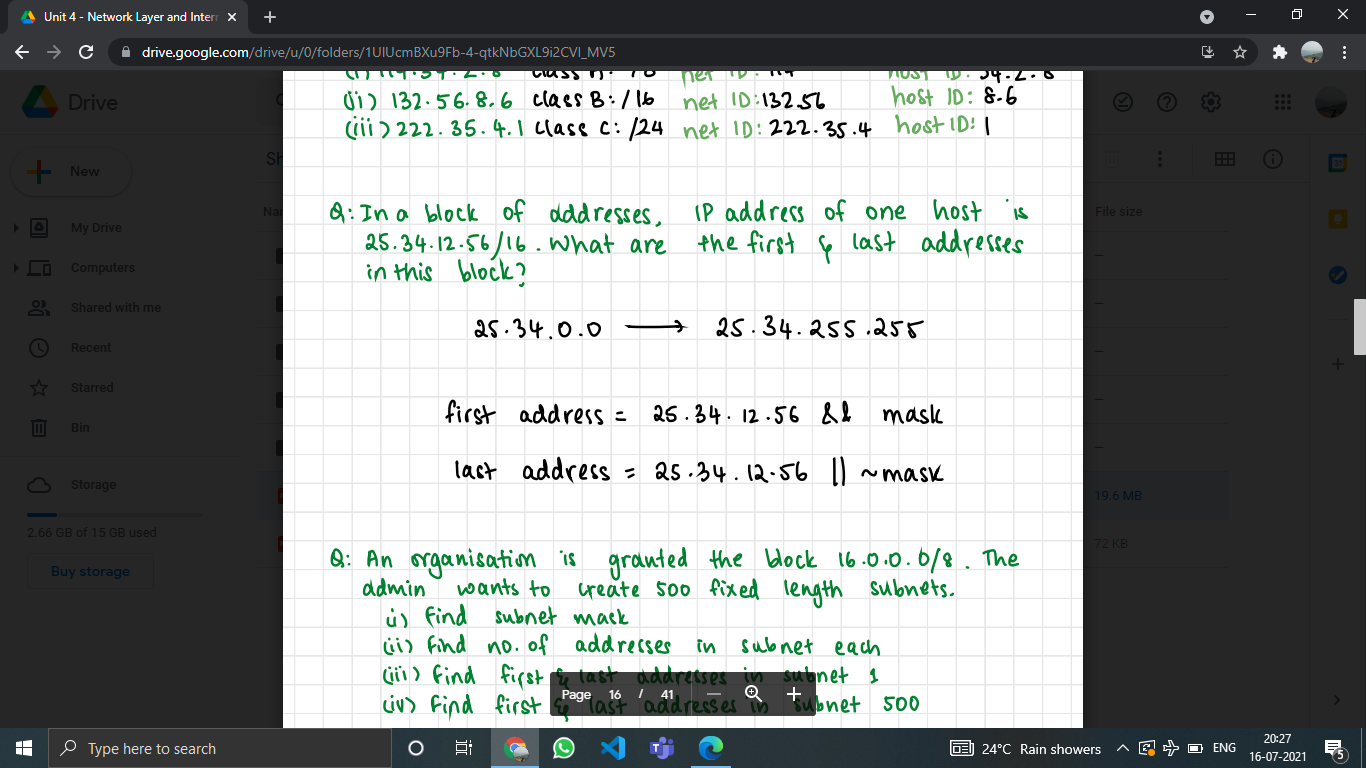 Unit 4 - Network Layer and Inter
drive.google.com/drive/u/0/folders/1UlUcmBXu9Fb-4-qtkNbGXL9i2CVl_MV5
Drive
New
My Drive
Computers
Shared with me
Recent
Starred
Bin
Storage
2.66 GB of 15 GB used
Buy storage
File size
19.6 MB
72 KB
(ii) 132.56.8.6 class B: /16 net ID: 132.56 host ID: 8.6
(iii) 222.35.4.1 class C: /24 net ID: 222.35.4 host ID: 1
Q: In a block of addresses, IP address of one host is
25.34.12.56/16. What are the first & last addresses
in this block?
25.34.0.0 → 25.34.255.255
first address = 25.34.12.56 && mask
last address = 25.34.12.56 || ~mask
Q: An organisation is granted the block 16.0.0.0/8. The
admin wants to create 500 fixed length subnets.
(i) Find subnet mask
(ii) Find no. of addresses in subnet each
(iii) Find first & last addresses in subnet 1
(iv) Find first & last addresses in subnet 500
Page 16 / 41
Type here to search
24°C Rain showers
ENG
20:27
16-07-2021
5